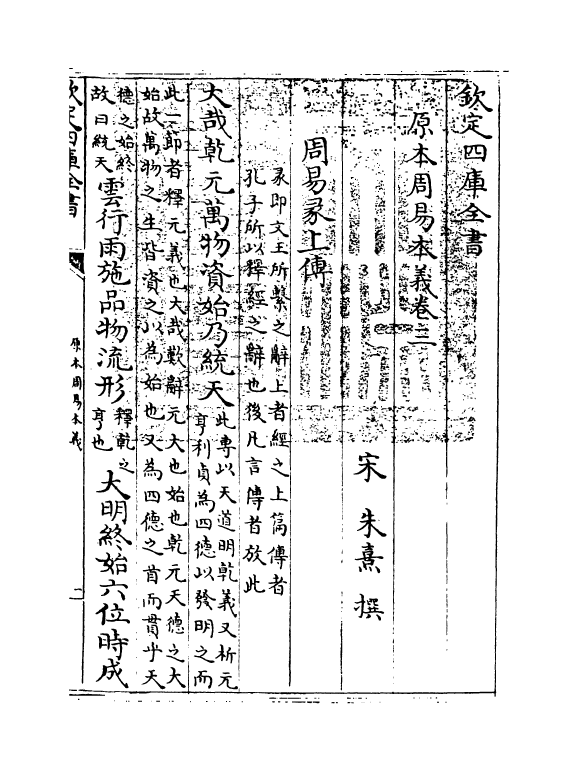 欽定四庫全書
原本周易本義卷三
宋 朱熹 撰
周易彖上傳
彖即文王所繫之辭上者經之上篇傳者
孔子所以釋經之辭也後凡言傳者放此
大哉乾元萬物資始乃統天
此專以天道明乾義又析元
亨利貞為四德以發明之而
此一節首釋元義也大哉歎辭元大也始也乾元天德之大
始故萬物之生皆資之以為始也又為四德之首而貫乎天
德之始終
故曰統天
雲行雨施品物流形
釋乾之
亨也
大明終始六位時成
欽定四庫全書
原本周易本義